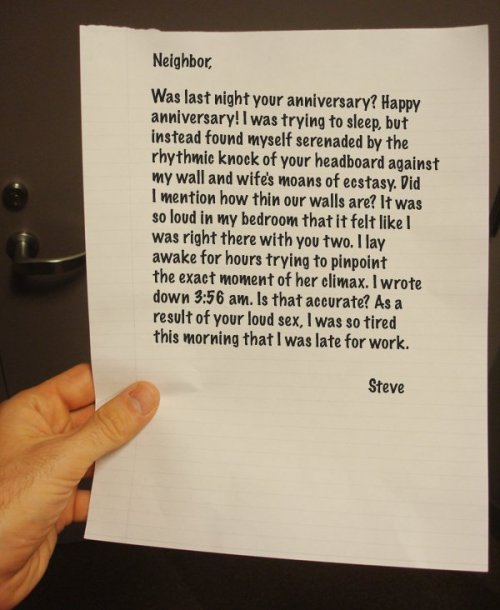 Neighbor,
Was last night your anniversary? Happy
anniversary! I was trying to sleep, but
instead found myself serenaded by the
rhythmic knock of your headboard against
my wall and wife's moans of ecstasy. Did
I mention how thin our walls are? It was
so loud in my bedroom that it felt like I
was right there with you two. I lay
awake for hours trying to pinpoint
the exact moment of her climax. I wrote
down 3:56 am. Is that accurate? As a
result of your loud sex, I was so tired
this morning that I was late for work.
Steve